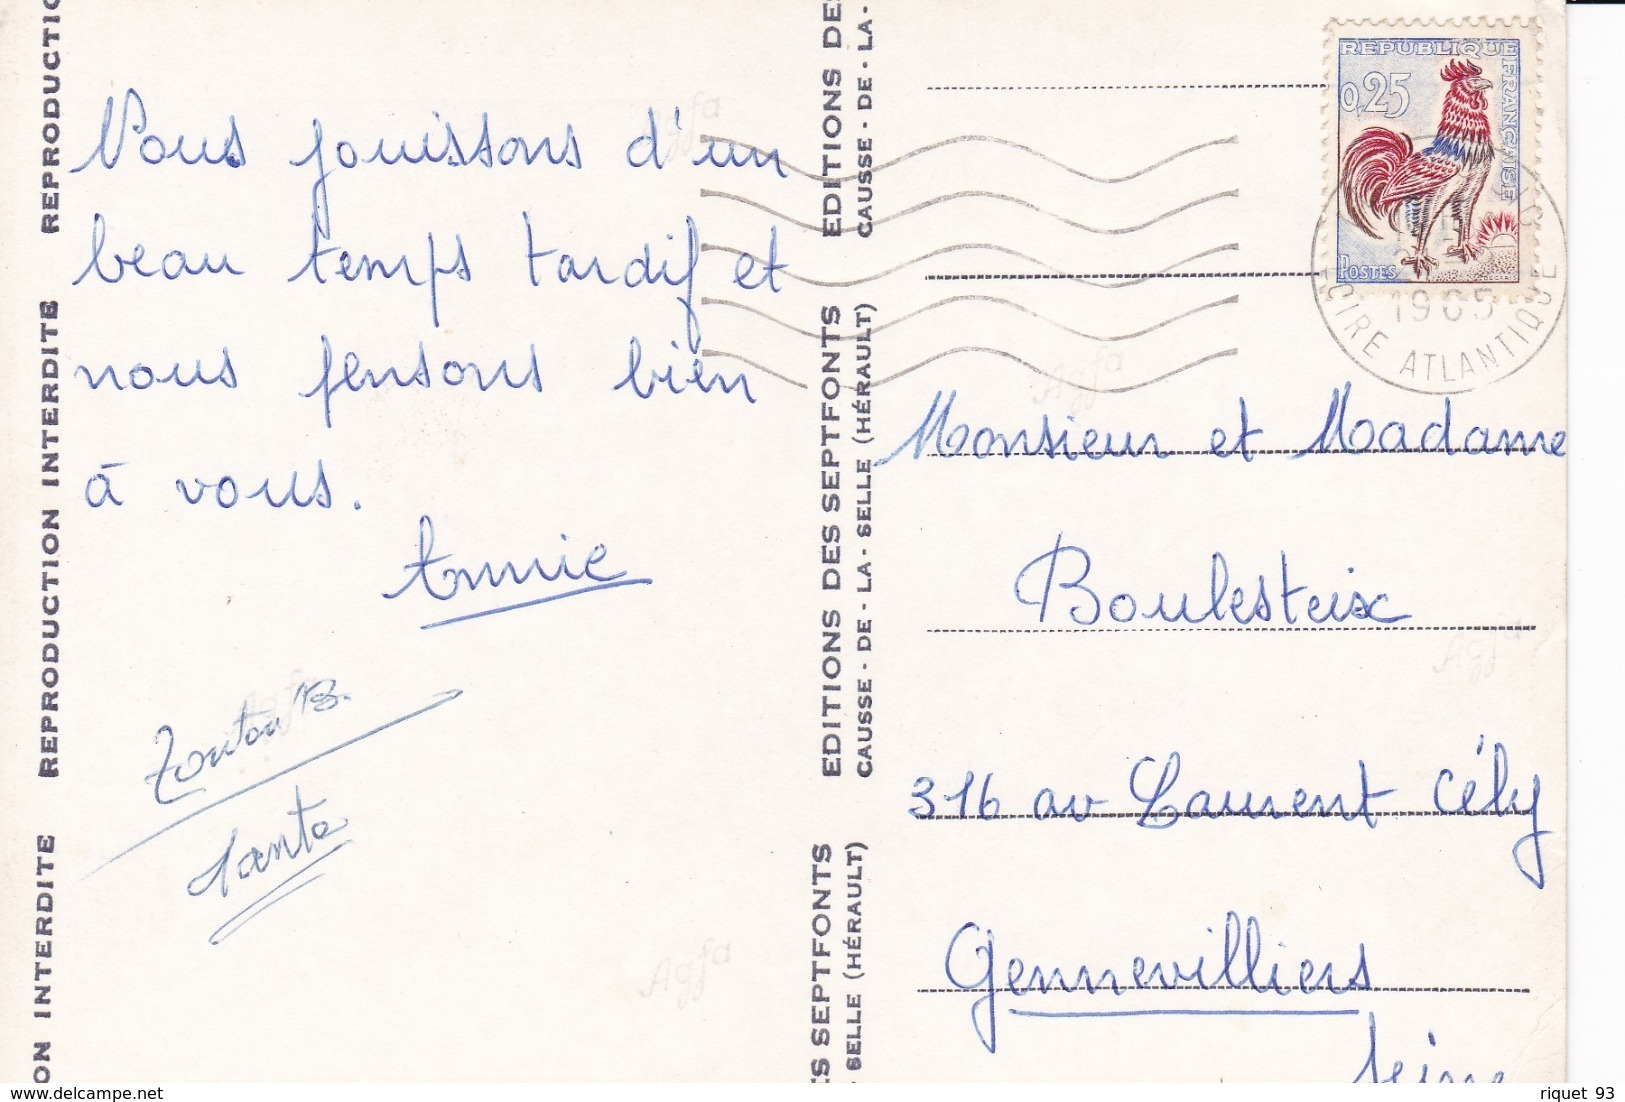 Nous jouissons d'un
beau temps tardif et
nous pensons bien
à vous.
Annie
Tonton B.
Tante
REPRODUCTION INTERDITE REPRODUCTI
ON INTERDITE
EDITIONS DES SEPTFONTS EDITIONS DE
CAUSSE - DE - LA - SELLE (HÉRAULT) CAUSSE - DE - LA -
ES SEPTFONTS
SELLE (HÉRAULT)
REPUBLIQUE FRANÇAISE
0,25
POSTES
1965
LOIRE ATLANTIQUE
Monsieur et Madame
Boulesteix
316 av Laurent Cély
Gennevilliers
Seine
Agfa
Agfa
Agfa
Agfa
Agfa
delcampe.net
riquet 93